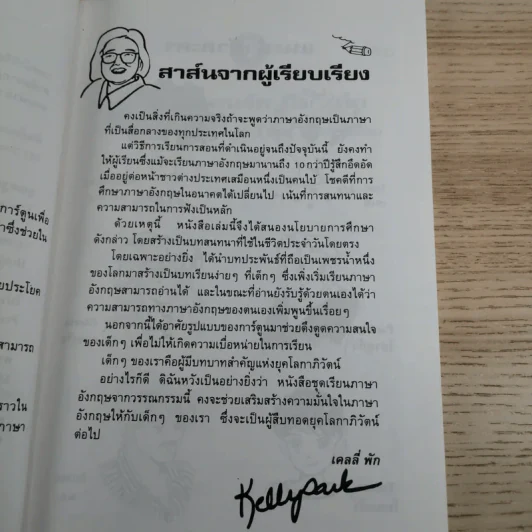 สาส์นจากผู้เรียบเรียง
คงเป็นสิ่งที่เกินความจริงถ้าจะพูดว่าภาษาอังกฤษเป็นภาษา
ที่เป็นสื่อกลางของทุกประเทศในโลก
แต่วิธีการเรียนการสอนที่ดำเนินอยู่จนถึงปัจจุบันนี้ ยังคงทำ
ให้ผู้เรียนซึ่งแม้จะเรียนภาษาอังกฤษมานานถึง 10 กว่าปีรู้สึกอึดอัด
เมื่ออยู่ต่อหน้าชาวต่างประเทศเสมือนหนึ่งเป็นคนใบ้ โชคดีที่การ
ศึกษาภาษาอังกฤษในอนาคตได้เปลี่ยนไป เน้นที่การสนทนาและ
ความสามารถในการฟังเป็นหลัก
ด้วยเหตุนี้ หนังสือเล่มนี้จึงได้สนองนโยบายการศึกษา
ดังกล่าว โดยสร้างเป็นบทสนทนาที่ใช้ในชีวิตประจำวันโดยตรง
โดยเฉพาะอย่างยิ่ง ได้นำบทประพันธ์ที่ถือเป็นเพชรน้ำหนึ่ง
ของโลกมาสร้างเป็นบทเรียนง่ายๆ ที่เด็กๆ ซึ่งเพิ่งเริ่มเรียนภาษา
อังกฤษสามารถอ่านได้ และในขณะที่อ่านยังรับรู้ด้วยตนเองได้ว่า
ความสามารถทางภาษาอังกฤษของตนเองเพิ่มพูนขึ้นเรื่อยๆ
นอกจากนี้ได้อาศัยรูปแบบของการ์ตูนมาช่วยดึงดูดความสนใจ
ของเด็กๆ เพื่อไม่ให้เกิดความเบื่อหน่ายในการเรียน
เด็กๆ ของเราคือผู้มีบทบาทสำคัญแห่งยุคโลกาภิวัตน์
อย่างไรก็ดี ดิฉันหวังเป็นอย่างยิ่งว่า หนังสือชุดเรียนภาษา
อังกฤษจากวรรณกรรมนี้ คงจะช่วยเสริมสร้างความมั่นใจในภาษา
อังกฤษให้กับเด็กๆ ของเรา ซึ่งจะเป็นผู้สืบทอดยุคโลกาภิวัตน์
ต่อไป
เคลลี่ พัก
Kelly Park